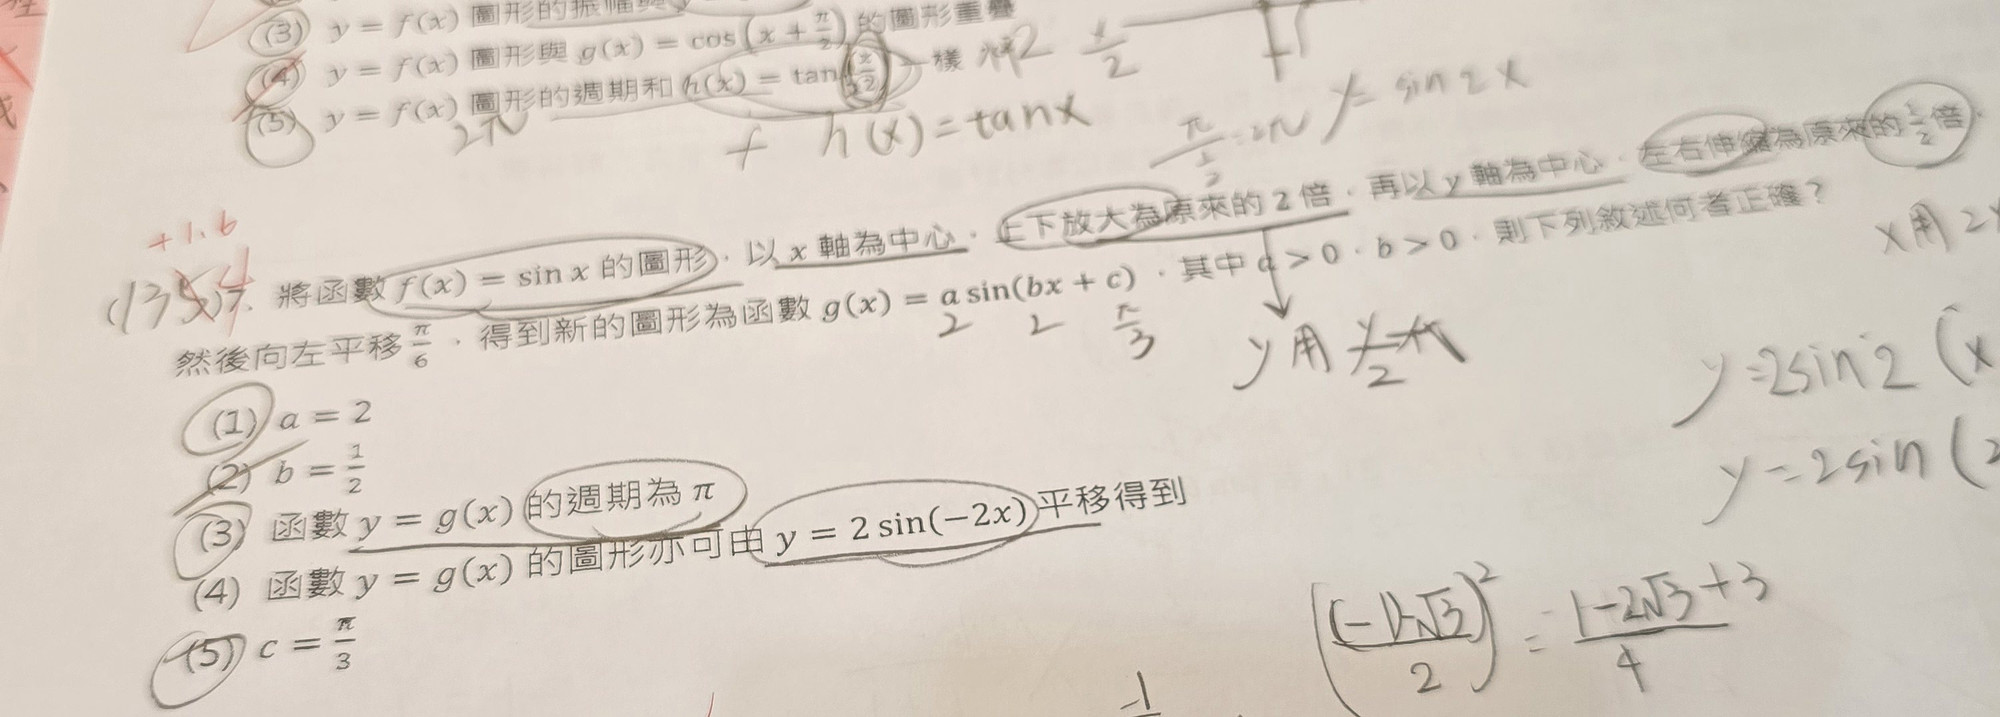 (3) y = f(x) 圖形的振幅與
(4) y = f(x) 圖形與 g(x) = cos(x + π/2) 的圖形重疊
(5) y = f(x) 圖形的週期和 h(x) = tan(x/2) 一樣
x/2
2π
h(x) = tanx
y = sin2x
π/(1/2) = 2π
+1.6
(1354)
7. 將函數 f(x) = sin x 的圖形，以 x 軸為中心，上下放大為原來的 2 倍，再以 y 軸為中心，左右伸縮為原來的 1/2 倍，
然後向左平移 π/6，得到新的圖形為函數 g(x) = a sin(bx + c)，其中 a > 0，b > 0，則下列敘述何者正確？
2 2 π/3
y用 y/2
x用 2x
(1) a = 2
(2) b = 1/2
(3) 函數 y = g(x) 的週期為 π
(4) 函數 y = g(x) 的圖形亦可由 y = 2 sin(−2x) 平移得到
(5) c = π/3
y=2sin2(x
y=2sin(2
= (1-2√3+3)/4
-1